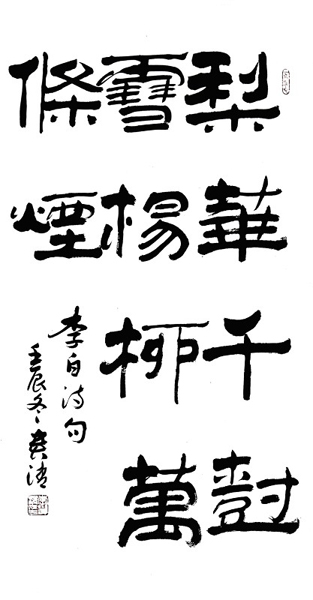 梨華千尌
雪楊柳萬
條煙
李白诗句
壬辰冬